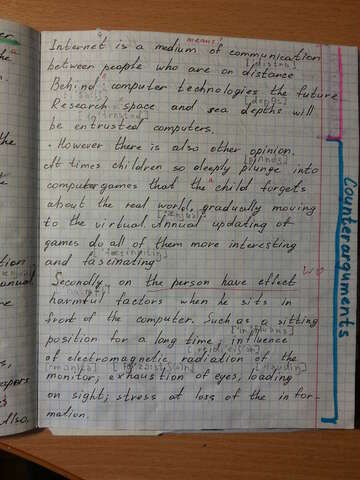 means
Internet is a medium of communication
between people who are on distance
Behind computer technologies the future
Research space and sea depths will
be entrusted computers.
However there is also other opinion.
At times children so deeply plunge into
computer games that the child forgets
about the real world, gradually moving
to the virtual. Annual updating of
games do all of them more interesting
and fascinating.
Secondly, on the person have effect
harmful factors when he sits in
front of the computer. Such as a sitting
position for a long time; influence
of electromagnetic radiation of the
monitor; exhaustion of eyes, loading
on sight; stress at loss of the infor-
mation.
Counterarguments